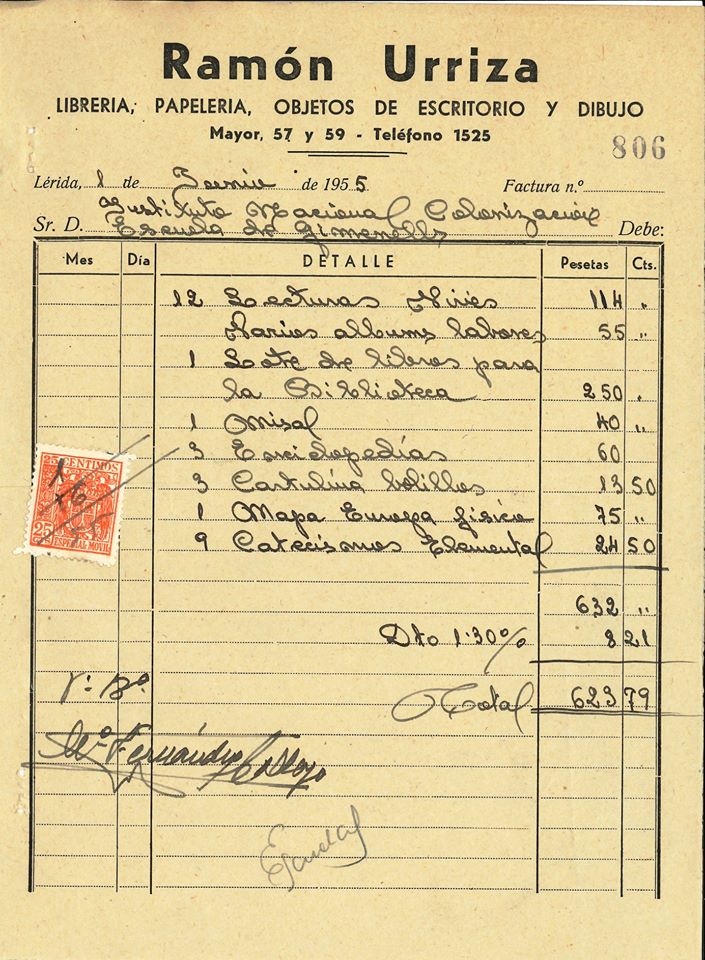 Ramón Urriza
LIBRERIA, PAPELERIA, OBJETOS DE ESCRITORIO Y DIBUJO
Mayor, 57 y 59 - Teléfono 1525
806
Lérida, 1 de Junio de 1955 Factura n.º
Instituto Nacional Colonización
Sr. D. Escuela de Gimenells Debe:
Mes Día DETALLE Pesetas Cts.
12 Lecturas 114 "
Varios albums labores 55 "
1 Lote de libros para
la Biblioteca 250 "
1 Misal 40 "
3 Enciclopedias 60
3 Cartulina bolillos 13 50
1 Mapa Europa física 75 "
9 Catecismos Elemental 24 50
25 CENTIMOS
1
6
25
ESPECIAL MOVIL
632 "
Dto 1'30% 8 21
Total 623 79
Vº Bº
Mª Fernández